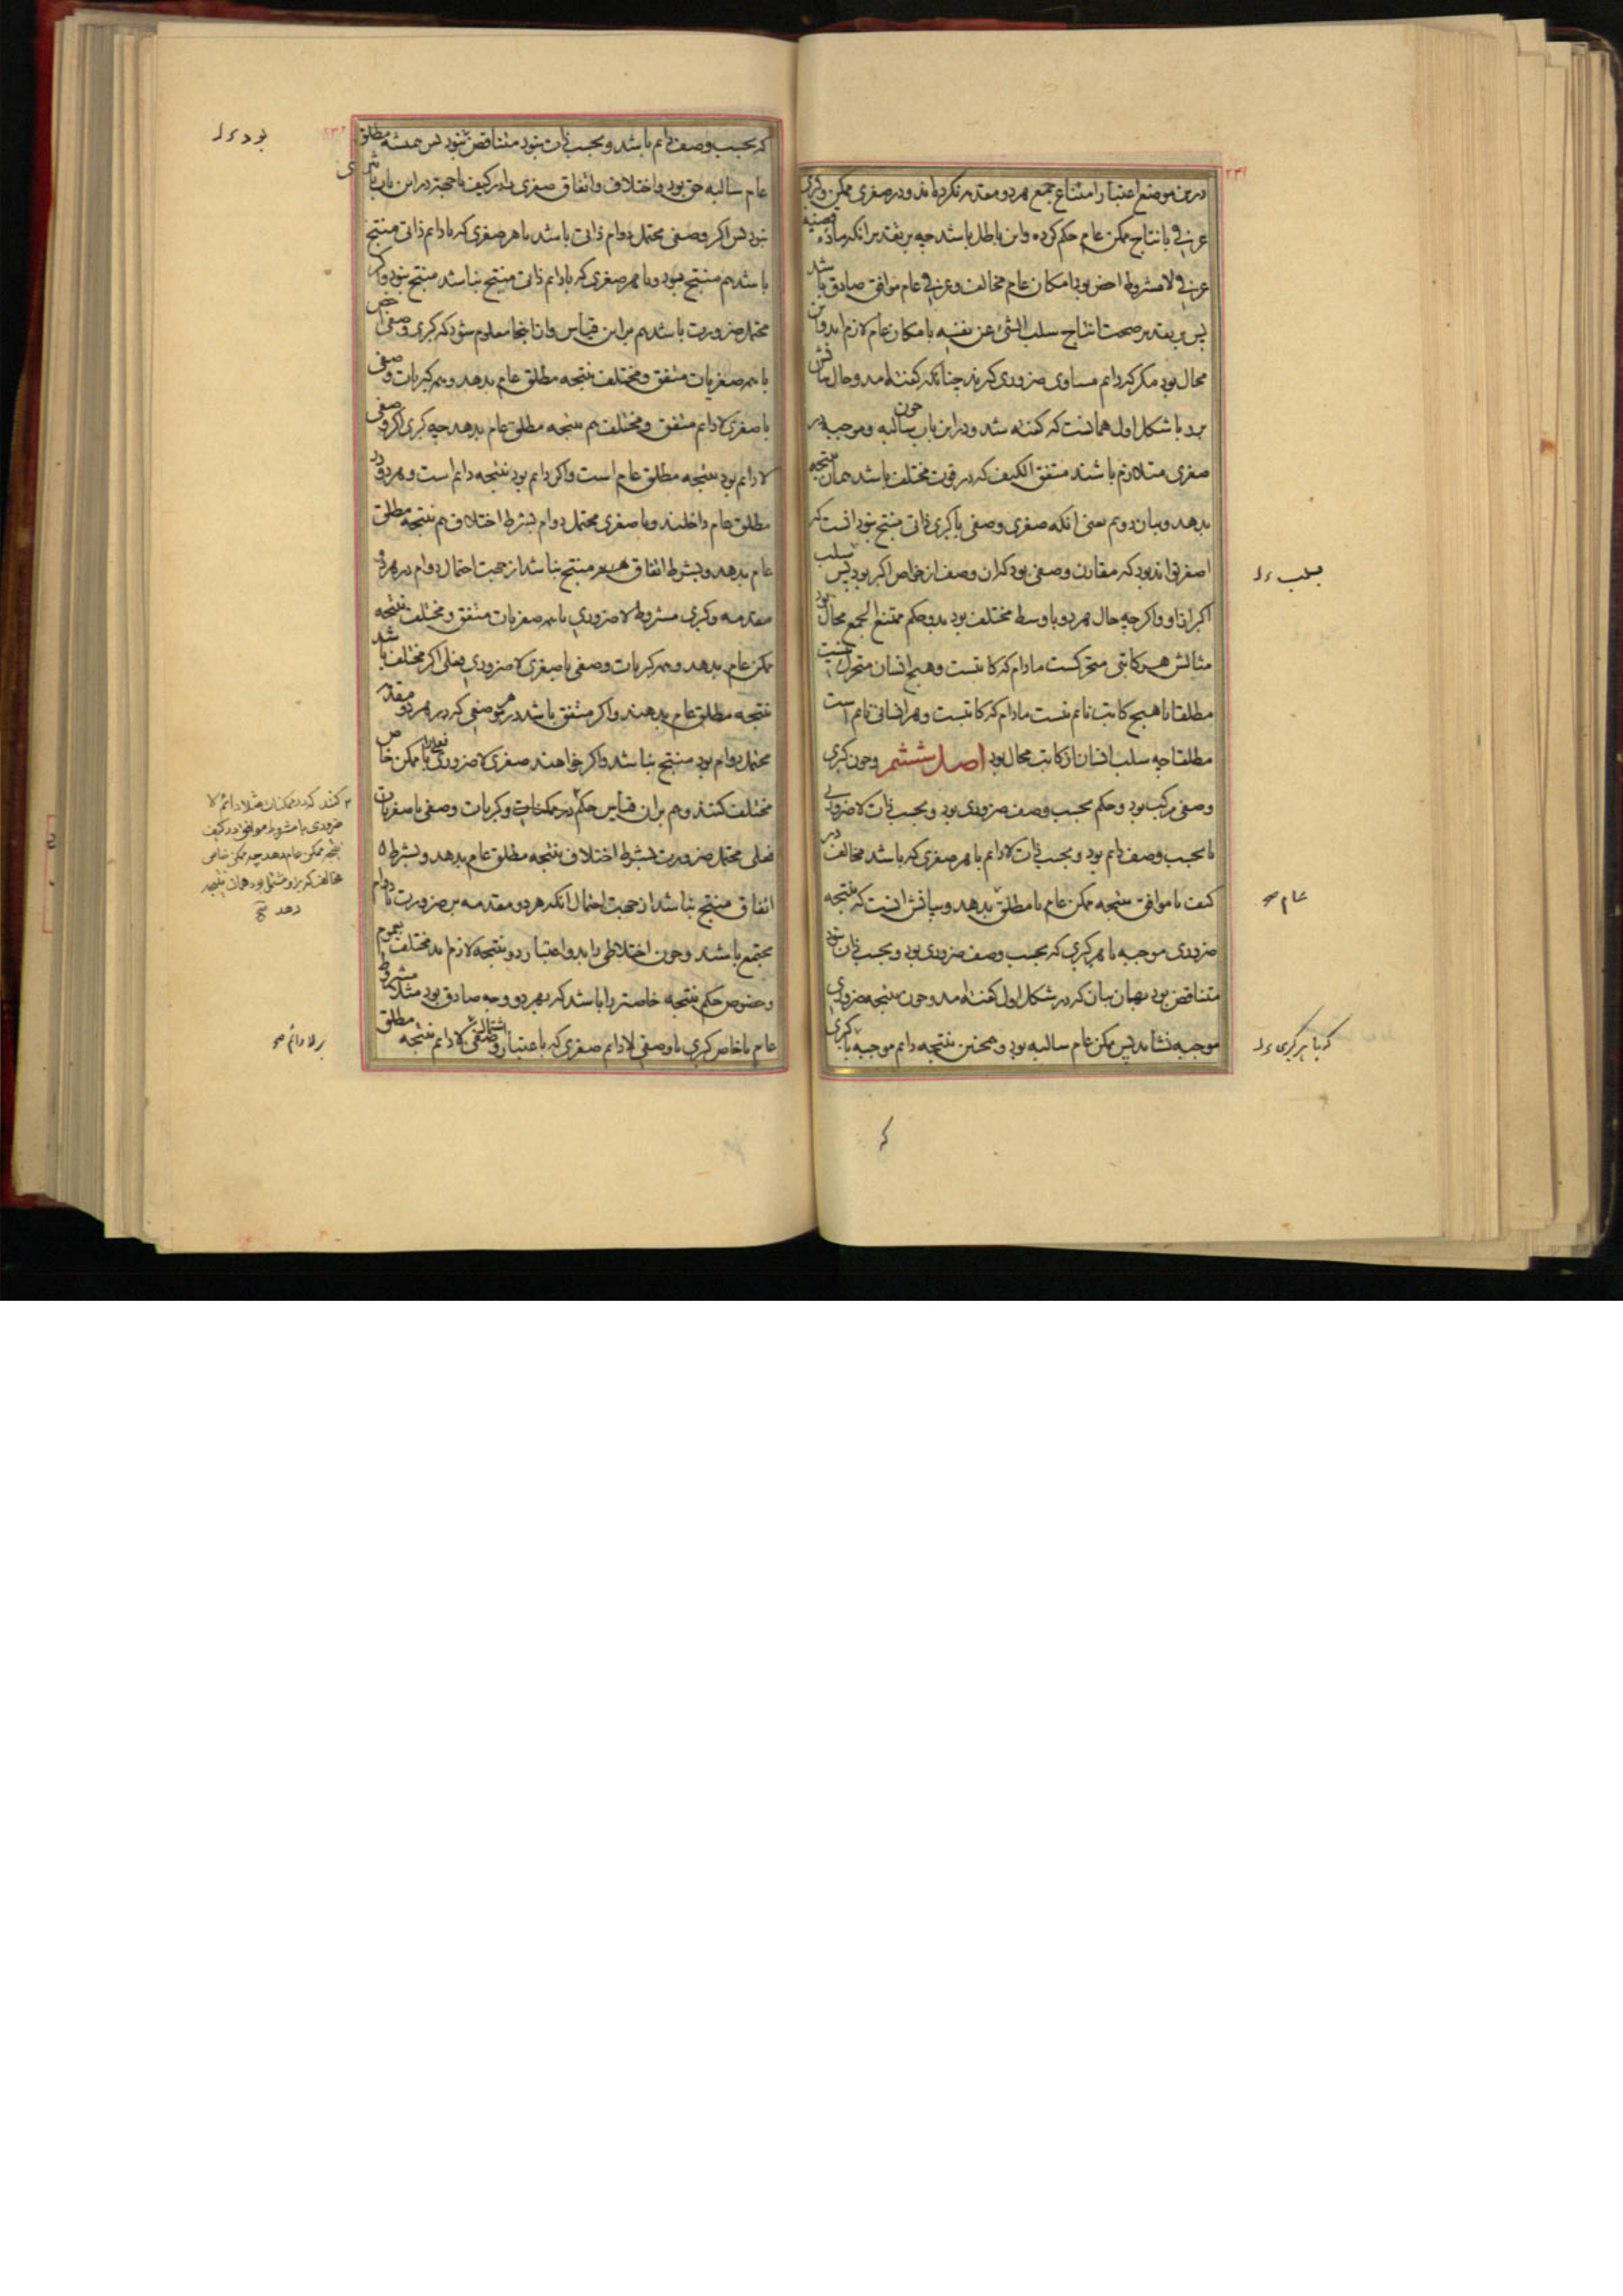 ۲۳۱
درین موضع اعتبار امتناع جمع هر دو مقدمه نکرده‌اند و در صغری ممکن و کبری
عرفی بانتاج ممکن عام حکم کرده و این باطل باشد چه بر تقدیر آنکه ماده قضیه
عرفی لا مشروط اخص بود امکان عام مخالف و عرفی عام موافق صادق باشد
پس بر تقدیر صحت انتاج سلب الشی عن نفسه بامکان عام لازم آید و این
محال بود مکر که دائم مساوی ضروری کیرند چنانکه کفته آمد و حال
برد با شکل اول همانست که کفته شد و در این باب چون سالبه و موجبه در
صغری متلازم باشند متفق الکیف که در قوت مختلف باشد همان نتیجه
بدهد و بیان دوم یعنی آنکه صغری وصفی با کبری ذاتی منتج نبود آنست که
اصغر تواند بود که مقارن وصفی بود که آن وصف از خواص اکبر بود پس سلب
اکبر از او و اکر چه حال هر دو با وسط مختلف بود بدو حکم ممتنع الجمع محال بود
مثالش هر کاتبی متحرکست مادام که کاتبست و هیچ انسان متحرک نیست
مطلقا یا هیچ کاتب نائم نیست مادام که کاتبست و هر انسانی نائم است
مطلقا چه سلب انسان از کاتب محال بود اصل ششم و چون کبری
وصفی مرکب بود و حکم بحسب وصف ضروری بود و بحسب ذات لا ضروری
یا بحسب وصف دائم بود و بحسب ذات لا دائم با هر صغری که باشد مخالف در
کیف یا موافق نتیجه ممکن عام یا مطلق بدهد و بیانش آنست که نتیجه
ضروری موجبه با هر کبری که بحسب وصف ضروری بود و بحسب ذات نبود
متناقض بود بهمان بیان که در شکل اول کفته آمد و چون نتیجه ضروری
موجبه نشاید پس ممکن عام سالبه بود و همچنین نتیجه دائم موجبه با کبری
سلب
عام صح
که با هر کبری
که
۲۳۲
که بحسب وصف دائم باشد و بحسب ذات نبود متناقض بود پس همیشه مطلق
عام سالبه حق بود و اختلاف و اتفاق صغری را در کیف یا جهت در این باب تاثیری
نبود پس اکر وصفی محتمل دوام ذاتی باشد با هر صغری که با دائم ذاتی منتج
باشد هم منتج بود و با هر صغری که با دائم ذاتی منتج نباشد منتج نبود و اکر
محتمل ضرورت باشد هم بر این قیاس و از اینجا معلوم شود که کبری وصفی اخص
با همه صغریات متفق و مختلف نتیجه مطلق عام بدهد و همه کبریات وصفی
با صغری لا دائم متفق و مختلف هم نتیجه مطلق عام بدهد چه کبری اکر وصفی
لا دائم بود نتیجه مطلق عام است و اکر دائم بود نتیجه دائم است و هر دو در
مطلق عام داخلند و با صغری محتمل دوام بشرط اختلاف هم نتیجه مطلق
عام بدهد و بشرط اتفاق منتج نباشد از جهت احتمال دوام در هر دو
مقدمه و کبری مشروط لا ضروری با همه صغریات متفق و مختلف نتیجه
ممکن عام بدهد و همه کبریات وصفی با صغری لا ضروری فعلی اکر مختلف باشد
نتیجه مطلق عام بدهند و اکر متفق باشد در هر موضعی که در هر دو مقدمه
محتمل دوام بود منتج نباشد و اکر خواهند صغری لا ضروری فعلی را با ممکن خاص
مختلف کنند و هم بران قیاس حکم در ممکنات و کبریات وصفی با صغریات
فعلی محتمل ضرورت بشرط اختلاف نتیجه مطلق عام بدهد و بشرط
اتفاق منتج نباشد از جهت احتمال آنکه هر دو مقدمه بر ضرورت یا دوام
مجتمع باشند و چون اختلاطی را بدو اعتبار دو نتیجه لازم آید مختلف بعموم
و خصوص حکم نتیجه خاصتر را باشد که بهر دو وجه صادق بود مثلا مشروط
عام یا خاص کبری با وصفی لا دائم صغری که باعتبار اشتمالش وصفی لا دائم نتیجه مطلق
بود
کنند که در ممکنات مثلا دائم لا
ضروری با مشروط موافق در کیف
نتیجه ممکن عام دهد چه ممکن خاص
مخالف که بر او مشتمل بود همان نتیجه
دهد
بر لا دائم صح